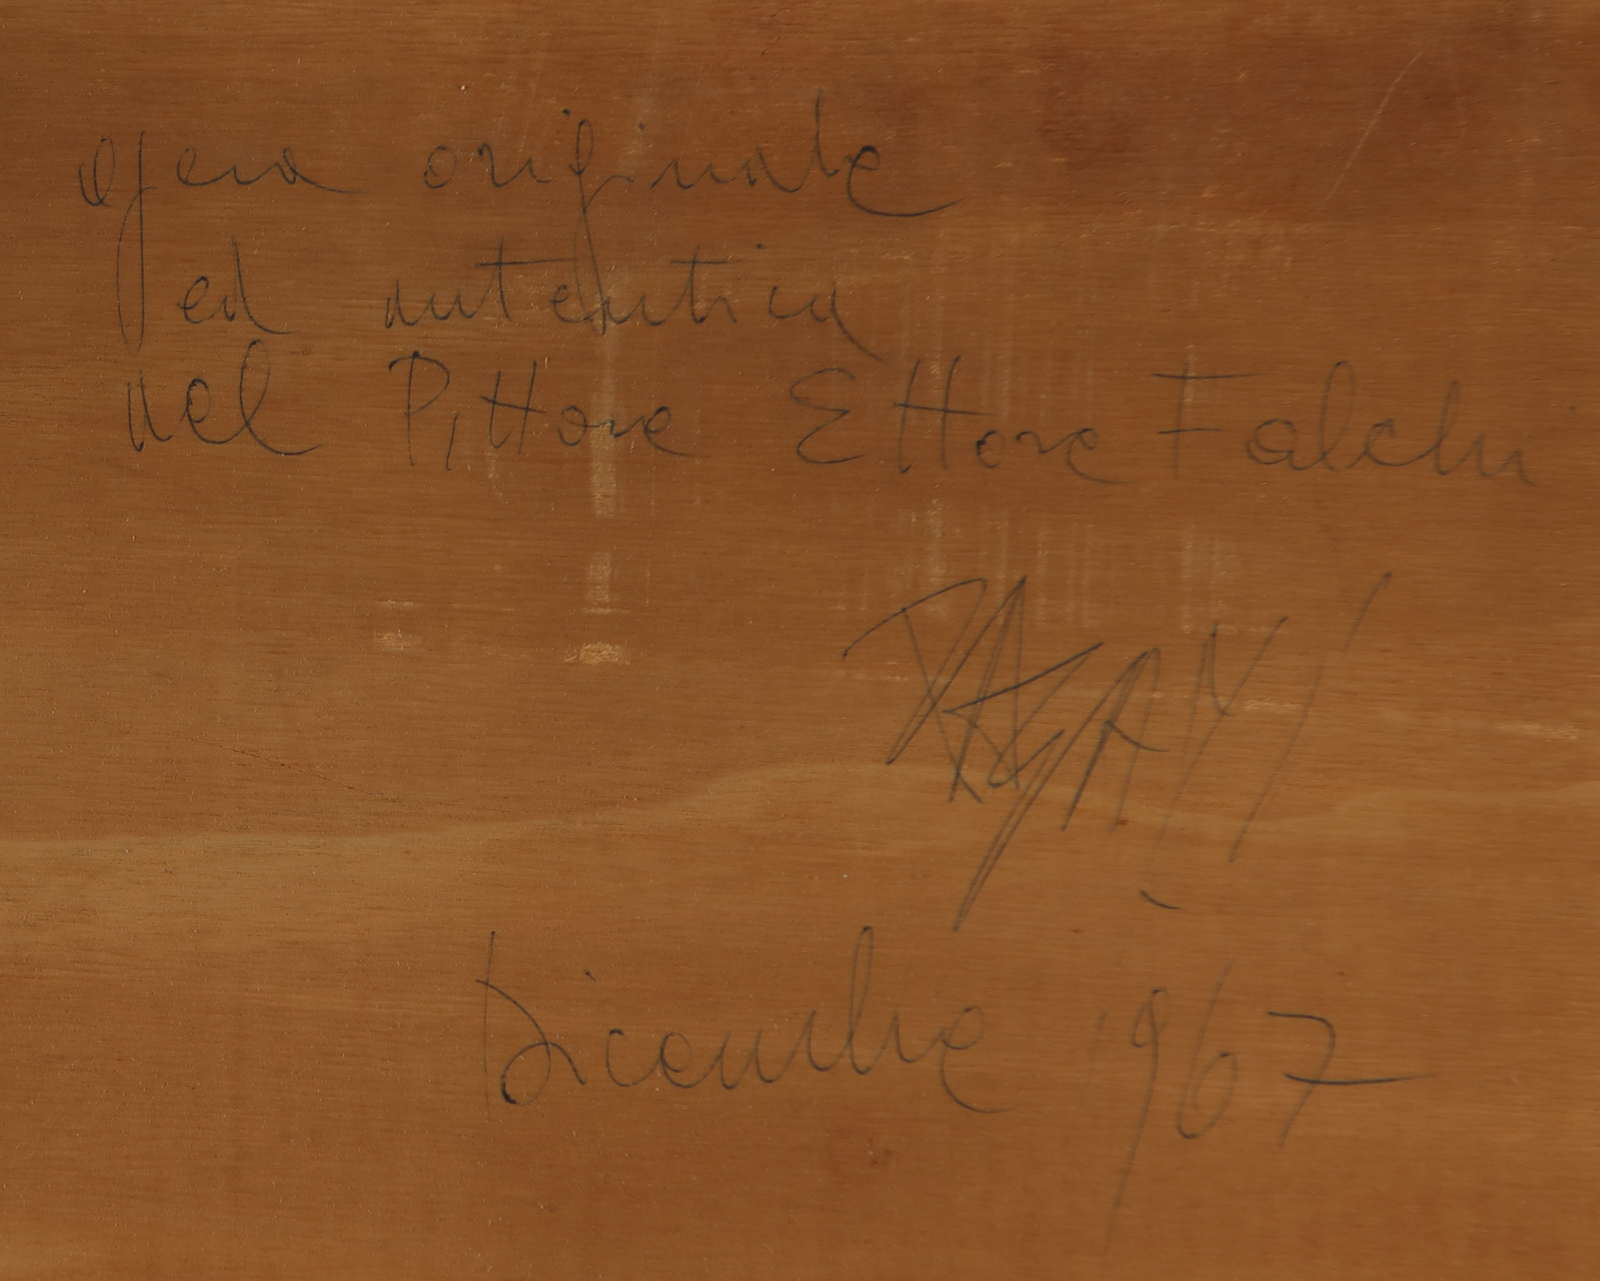 opera originale
ed autentica
del Pittore Ettore Falchi
Dicembre 1967